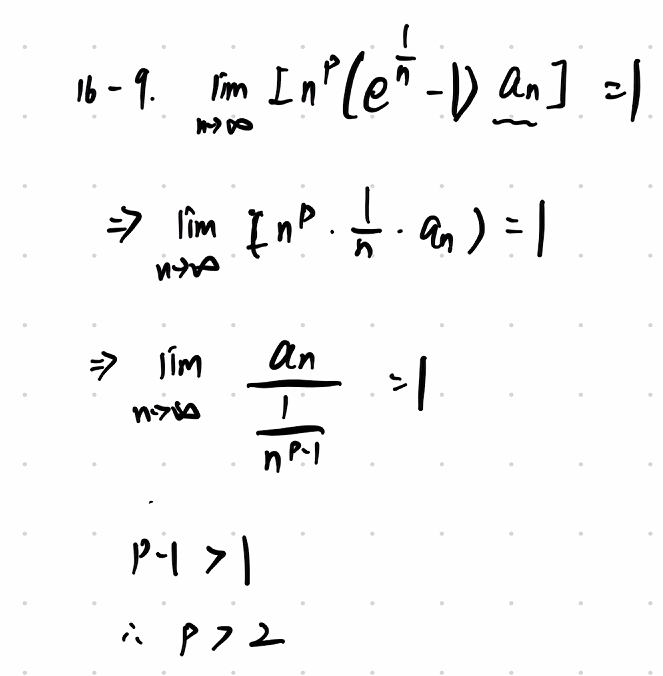 16-9. lim n→∞ [n^p(e^(1/n) -1) a_n] =1
⇒ lim n→∞ [n^p · 1/n · a_n) =1
⇒ lim n→∞ a_n / (1/n^(p-1)) =1
p-1 >1
∴ p > 2